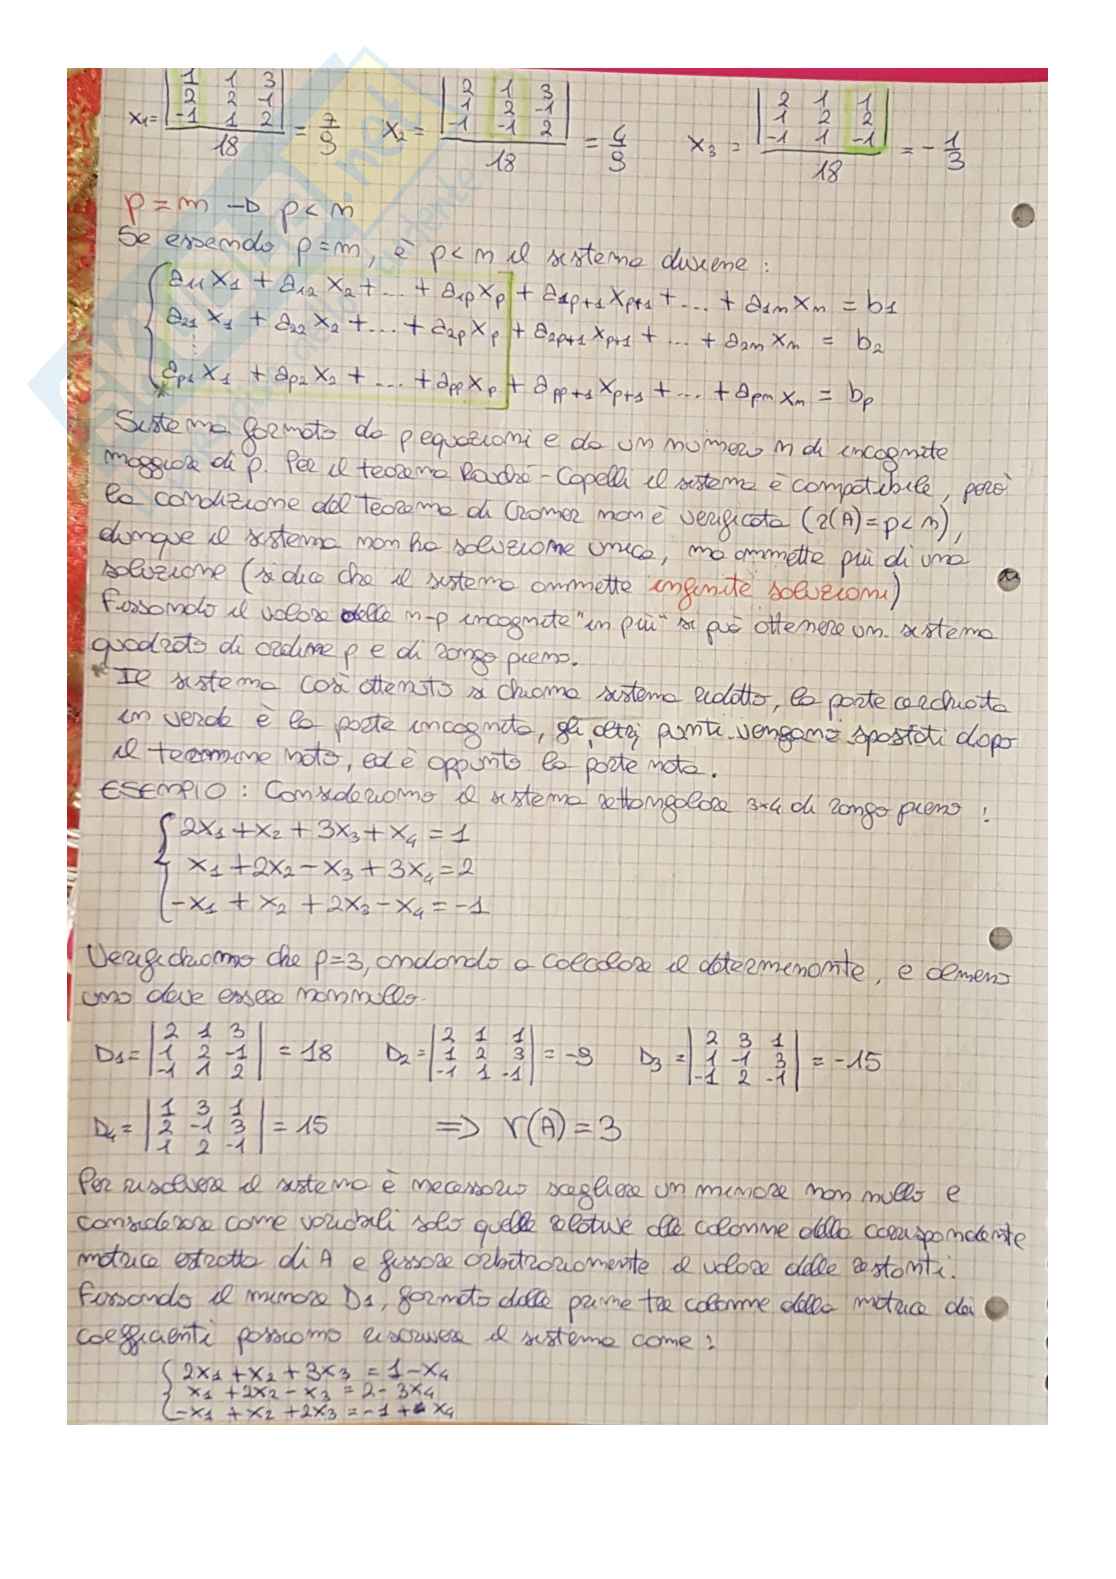 x1 = |1 1 3| = 7/9   x2 = |2 1 3| = 4/9   x3 = |2 1 1| = - 1/3
|2 2 -1|   |1 2 -1|   |1 2 2|
|-1 1 2|   |-1 -1 2|   |-1 1 -1|
18   18   18
p = m → p < n
Se essendo p=m, è p<n il sistema diviene :
a11 x1 + a12 x2 + ... + a1p xp + a1p+1 xp+1 + ... + a1n xn = b1
a21 x1 + a22 x2 + ... + a2p xp + a2p+1 xp+1 + ... + a2n xn = b2
⋮
ap1 x1 + ap2 x2 + ... + app xp + app+1 xp+1 + ... + apn xn = bp
*
Sistema formato da p equazioni e da un numero n di incognite
maggiore di p. Per il teorema Rouché-Capelli il sistema è compatibile, però
la condizione del Teorema di Cramer non è verificata (r(A)=p<n),
dunque il sistema non ha soluzione unica, ma ammette più di una
soluzione (si dice che il sistema ammette infinite soluzioni)
Fissando il valore delle n-p incognite "in più" si può ottenere un sistema
quadrato di ordine p e di rango pieno.
* Il sistema così ottenuto si chiama sistema ridotto, la parte cerchiata
in verde è la parte incognita, gli altri punti vengano spostati dopo
il termine noto, ed è appunto la parte nota.
ESEMPIO : Consideriamo il sistema rettangolare 3×4 di rango pieno :
2x1 + x2 + 3x3 + x4 = 1
x1 + 2x2 - x3 + 3x4 = 2
-x1 + x2 + 2x3 - x4 = -1
Verifichiamo che p=3, andando a calcolare il determinante, e almeno
uno deve essere non nullo.
D1 = |2 1 3| = 18   D2 = |2 1 1| = -9   D3 = |2 3 1| = -15
|1 2 -1|   |1 2 3|   |1 -1 3|
|-1 1 2|   |-1 1 -1|   |-1 2 -1|
D4 = |1 3 1| = 15   ⇒ r(A) = 3
|2 -1 3|
|1 2 -1|
Per risolvere il sistema è necessario scegliere un minore non nullo e
considerare come variabili solo quelle relative alle colonne della corrispondente
matrice estratta di A e fissare arbitrariamente il valore delle restanti.
Fissando il minore D1, formato dalle prime tre colonne della matrice dei
coefficienti possiamo riscrivere il sistema come :
2x1 + x2 + 3x3 = 1 - x4
x1 + 2x2 - x3 = 2 - 3x4
-x1 + x2 + 2x3 = -1 + x4